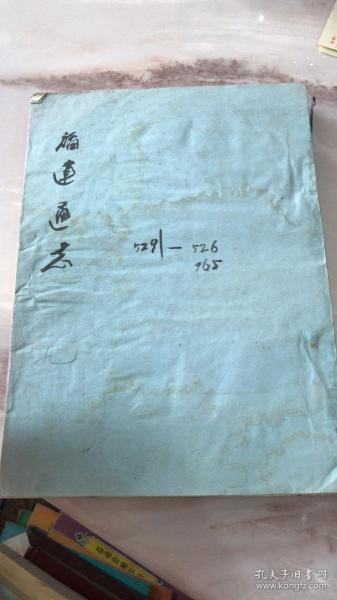 福建通志
529 — 526
965
九
幼学启蒙丛
孔夫子旧书网
www.kongfz.com